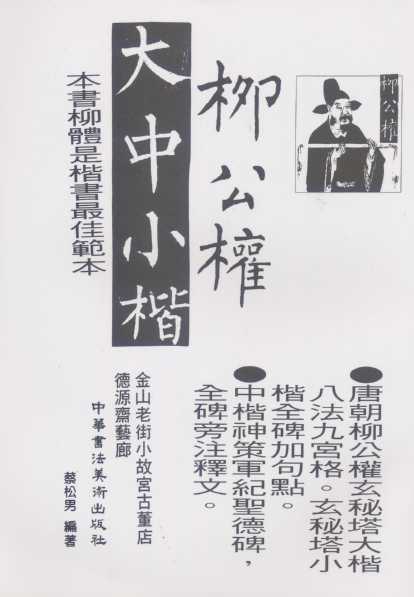 柳公權
柳公權
大中小楷
本書柳體是楷書最佳範本
●唐朝柳公權玄秘塔大楷
八法九宮格。玄秘塔小
楷全碑加句點。
●中楷神策軍紀聖德碑，
全碑旁注釋文。
金山老街小故宮古董店
德源齋藝廊
中華書法美術出版社
蔡松男 編著